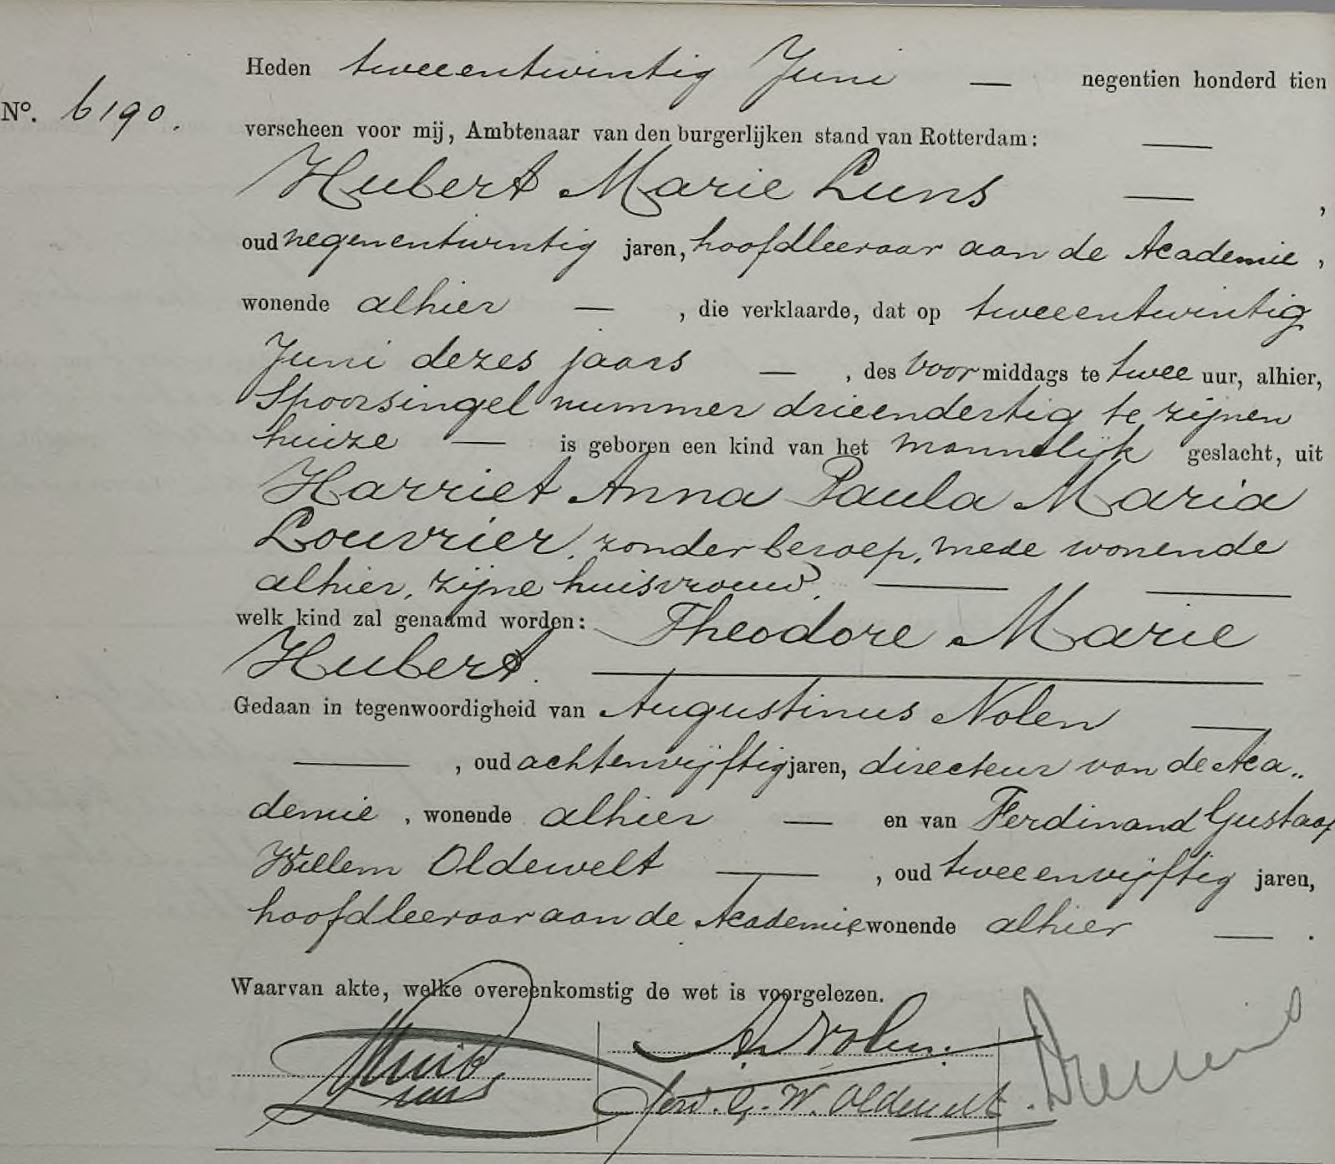 Heden tweeentwintig Juni — negentien honderd tien
Nº. 6190.
verscheen voor mij, Ambtenaar van den burgerlijken stand van Rotterdam: —
Hubert Marie Luns — ,
oud negenentwintig jaren, hoofdleeraar aan de Academie ,
wonende alhier — , die verklaarde, dat op tweeentwintig
Juni dezes jaars — , des voormiddags te twee uur, alhier,
Spoorsingel nummer drieendertig te zijnen
huize — is geboren een kind van het mannelijk geslacht, uit
Harriet Anna Paula Maria
Louvrier, zonder beroep, mede wonende
alhier, zijne huisvrouw. —
welk kind zal genaamd worden: Theodore Marie
Hubert. —
Gedaan in tegenwoordigheid van Augustinus Nolen —
— , oud achtenvijftig jaren, directeur van de Aca„
demie , wonende alhier — en van Ferdinand Gustaaf
Willem Oldewelt — , oud tweeenvijftig jaren,
hoofdleeraar aan de Academie wonende alhier — .
Waarvan akte, welke overeenkomstig de wet is voorgelezen.
Huib Luns
A. Nolen.
Ferd. G. W. Oldewelt.